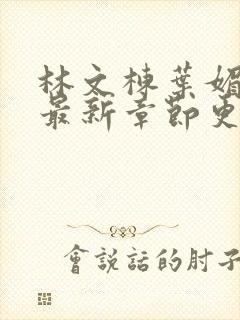 林文棟葉媚
最新章節更
會說話的肘子